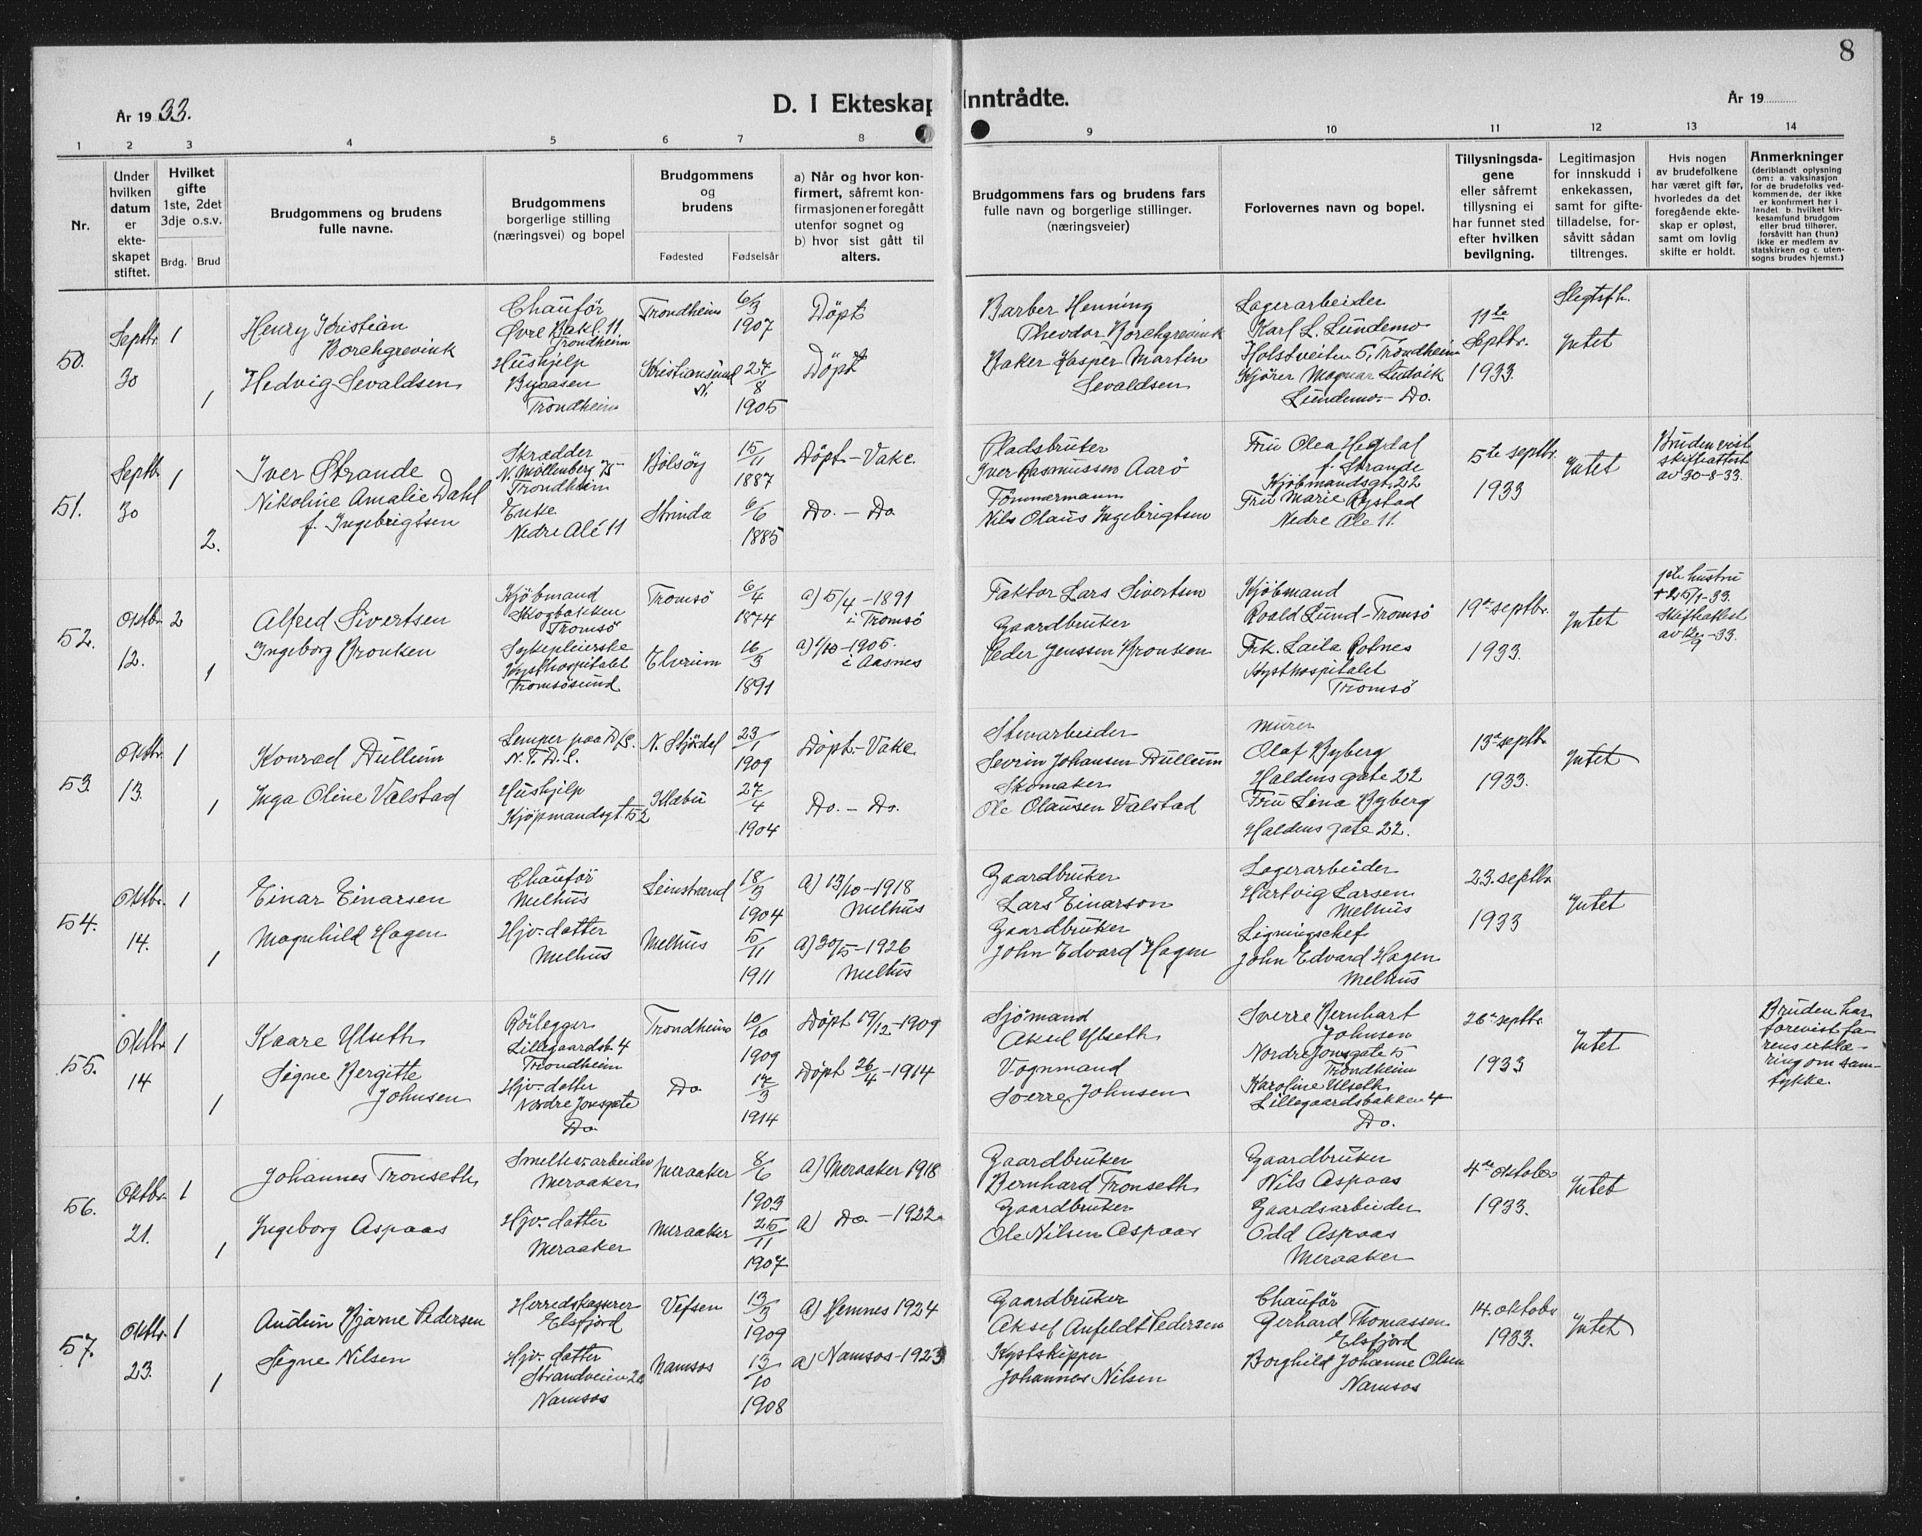 8
År 1933.
D. I Ekteskap Inntrådte.
År 19
1 2 3 4 5 6 7 8 9 10 11 12 13 14
Nr.
Under hvilken datum er ekteskapet stiftet.
Hvilket gifte 1ste, 2det 3dje o.s.v.
Brdg. Brud
Brudgommens og brudens fulle navne.
Brudgommens borgerlige stilling (næringsvei) og bopel
Brudgommens og brudens
Fødested Fødselsår
a) Når og hvor konfirmert, såfremt konfirmasjonen er foregått utenfor sognet og b) hvor sist gått til alters.
Brudgommens fars og brudens fars fulle navn og borgerlige stillinger. (næringsveier)
Forlovernes navn og bopel.
Tillysningsdagene eller såfremt tillysning ei har funnet sted efter hvilken bevilgning.
Legitimasjon for innskudd i enkekassen, samt for giftetilladelse, forsåvitt sådan tiltrenges.
Hvis nogen av brudefolkene har været gift før, hvorledes da det foregående ekteskap er opløst, samt om lovlig skifte er holdt.
Anmerkninger (deriblandt oplysning om: a. vaksinasjon for de brudefolks vedkommende, der ikke er konfirmert her i landet. b. hvilket kirkesamfund brudgom eller brud tilhører, forsåvitt han (hun) ikke er medlem av statskirken og c. utensogns brudes hjemst.)
50.
Septbr. 30
1
1
Henry Kristian Borchgrevink
Hedvig Sevaldsen
Chauför Øvre Bakl. 11 Trondheim
Hushjelp Byaasen Trondheim
Trondheim 6/3 1907
Kristiansund N. 27/8 1905
Döpt
Döpt
Barber Henning Theodor Borchgrevink
Baker Kasper Martin Sevaldsen
Lagerarbeider Karl L. Lundemo Holstveiten 5, Trondheim
Kjører Magnar Ludvik Lundemo - Do.
11te Septbr. 1933.
Slegtsfh.
Intet
51.
Septbr. 30
1
2.
Iver Strande
Nikoline Amalie Dahl f. Ingebrigtsen
Skrædder N. Møllenberg 75 Trondheim
Enke Nedre Alé 11
Bolsöy 15/11 1887
Strinda 6/6 1885
Döpt - Vake.
Do. - Do
Pladsbruker Iver Rasmussen Aarö
Tømmermann Nils Olaus Ingebrigtsen
Fru Olea Hegdal f. Strande Kjøbmandsgt. 22
Fru Marie Rystad Nedre Ale 11.
5te septbr. 1933
Intet
Bruden vist skifteattest av 30-8-33.
52.
Oktbr. 12.
2
1
Alfred Sivertsen
Ingeborg Bronken
Kjøbmand Skogbakken Tromsö
Sykepleierske Kysthospitalet Tromsøsund
Tromsö 6/4 1874
Elverum 16/3 1891
a) 5/4 - 1891 i Tromsö
a) 1/10 - 1905. i Aasnes
Faktor Lars Sivertsen
Gaardbruker Peder Jenssen Bronken
Kjøbmand Roald Lund - Tromsö
Frk. Laila Rotnes Kysthospitalet Tromsö
19de septbr. 1933.
Intet
1ste hustru
Skifteattest
53.
Oktbr. 13.
1
1
Konrad Dullum
Inga Oline Valstad
Lemper paa D/S. N.T.D.S.
Hushjelp Kjøpmandsgt 52
N. Stjördal 23/1 1909
Klæbu 27/4 1904
Döpt - Vake
Do. - Do.
Stenarbeider Sevrin Johansen Dullum
Skomaker Ole Olausen Valstad
Murer Olaf Byberg Haldens gate 22
Fru Lina Byberg Haldens gate 22.
13de septbr. 1933.
Intet
54.
Oktbr. 14.
1
1
Einar Einarsen
Magnhild Hagen
Chauför Melhus
Hjv. datter Melhus
Leinstrand 18/3 1904
Melhus 5/11 1911
a) 13/10 - 1918 Melhus
a) 30/5 - 1926 Melhus
Gaardbruker Lars Einarson
Gaardbruker John Edvard Hagen
Lagerarbeider Hartvig Larsen Melhus
Ligningschef John Edvard Hagen Melhus
23. septbr. 1933
Intet
55.
Oktbr. 14
1
1
Kaare Ulseth
Signe Bergitte Johnsen
Rörlegger Lillegaardsb. 4 Trondheim
Hjv. datter Nordre Jonsgate Do
Trondheim 10/10 1909
Do 17/3 1914
Döpt 19/12 - 1909
Döpt 26/4 - 1914
Sjömand Aksel Ulseth
Vognmand Sverre Johnsen
Sverre Bernhart Johnsen Nordre Jonsgate 5 Trondheim
Karoline Ulseth Lillegaardsbakken 4 Do.
26de septbr. 1933
Intet
Bruden har forevist farens erklæring om samtykke.
56.
Oktbr. 21.
1
1
Johannes Tronseth
Ingeborg Aspaas
Smeltev. arbeider Meraaker
Hjv. datter Meraaker
Meraaker 8/6 1903
Meraaker 25/11 1907
a) Meraaker 1918
a) Do - 1922
Gaardbruker Bernhard Tronseth
Gaardbruker Ole Nilsen Aspaas
Gaardbruker Nils Aspaas
Gaardsarbeider Odd Aspaas Meraaker
4de oktober 1933.
Intet
57.
Oktbr. 23.
1
1
Audun Bjarne Pedersen
Signe Nilsen
Herredskasserer Elsfjord
Hjv. datter Strandveien Namsos
Vefsen 13/3 1909
Namsos 13/10 1908
a) Hemnes 1924
a) Namsos - 1923
Gaardbruker Aksel Anfeldt Pedersen
Kystskipper Johannes Nilsen
Chauför Gerhard Thomassen Elsfjord
Borghild Johanne Olsen Namsos
14. oktobr 1933.
Intet